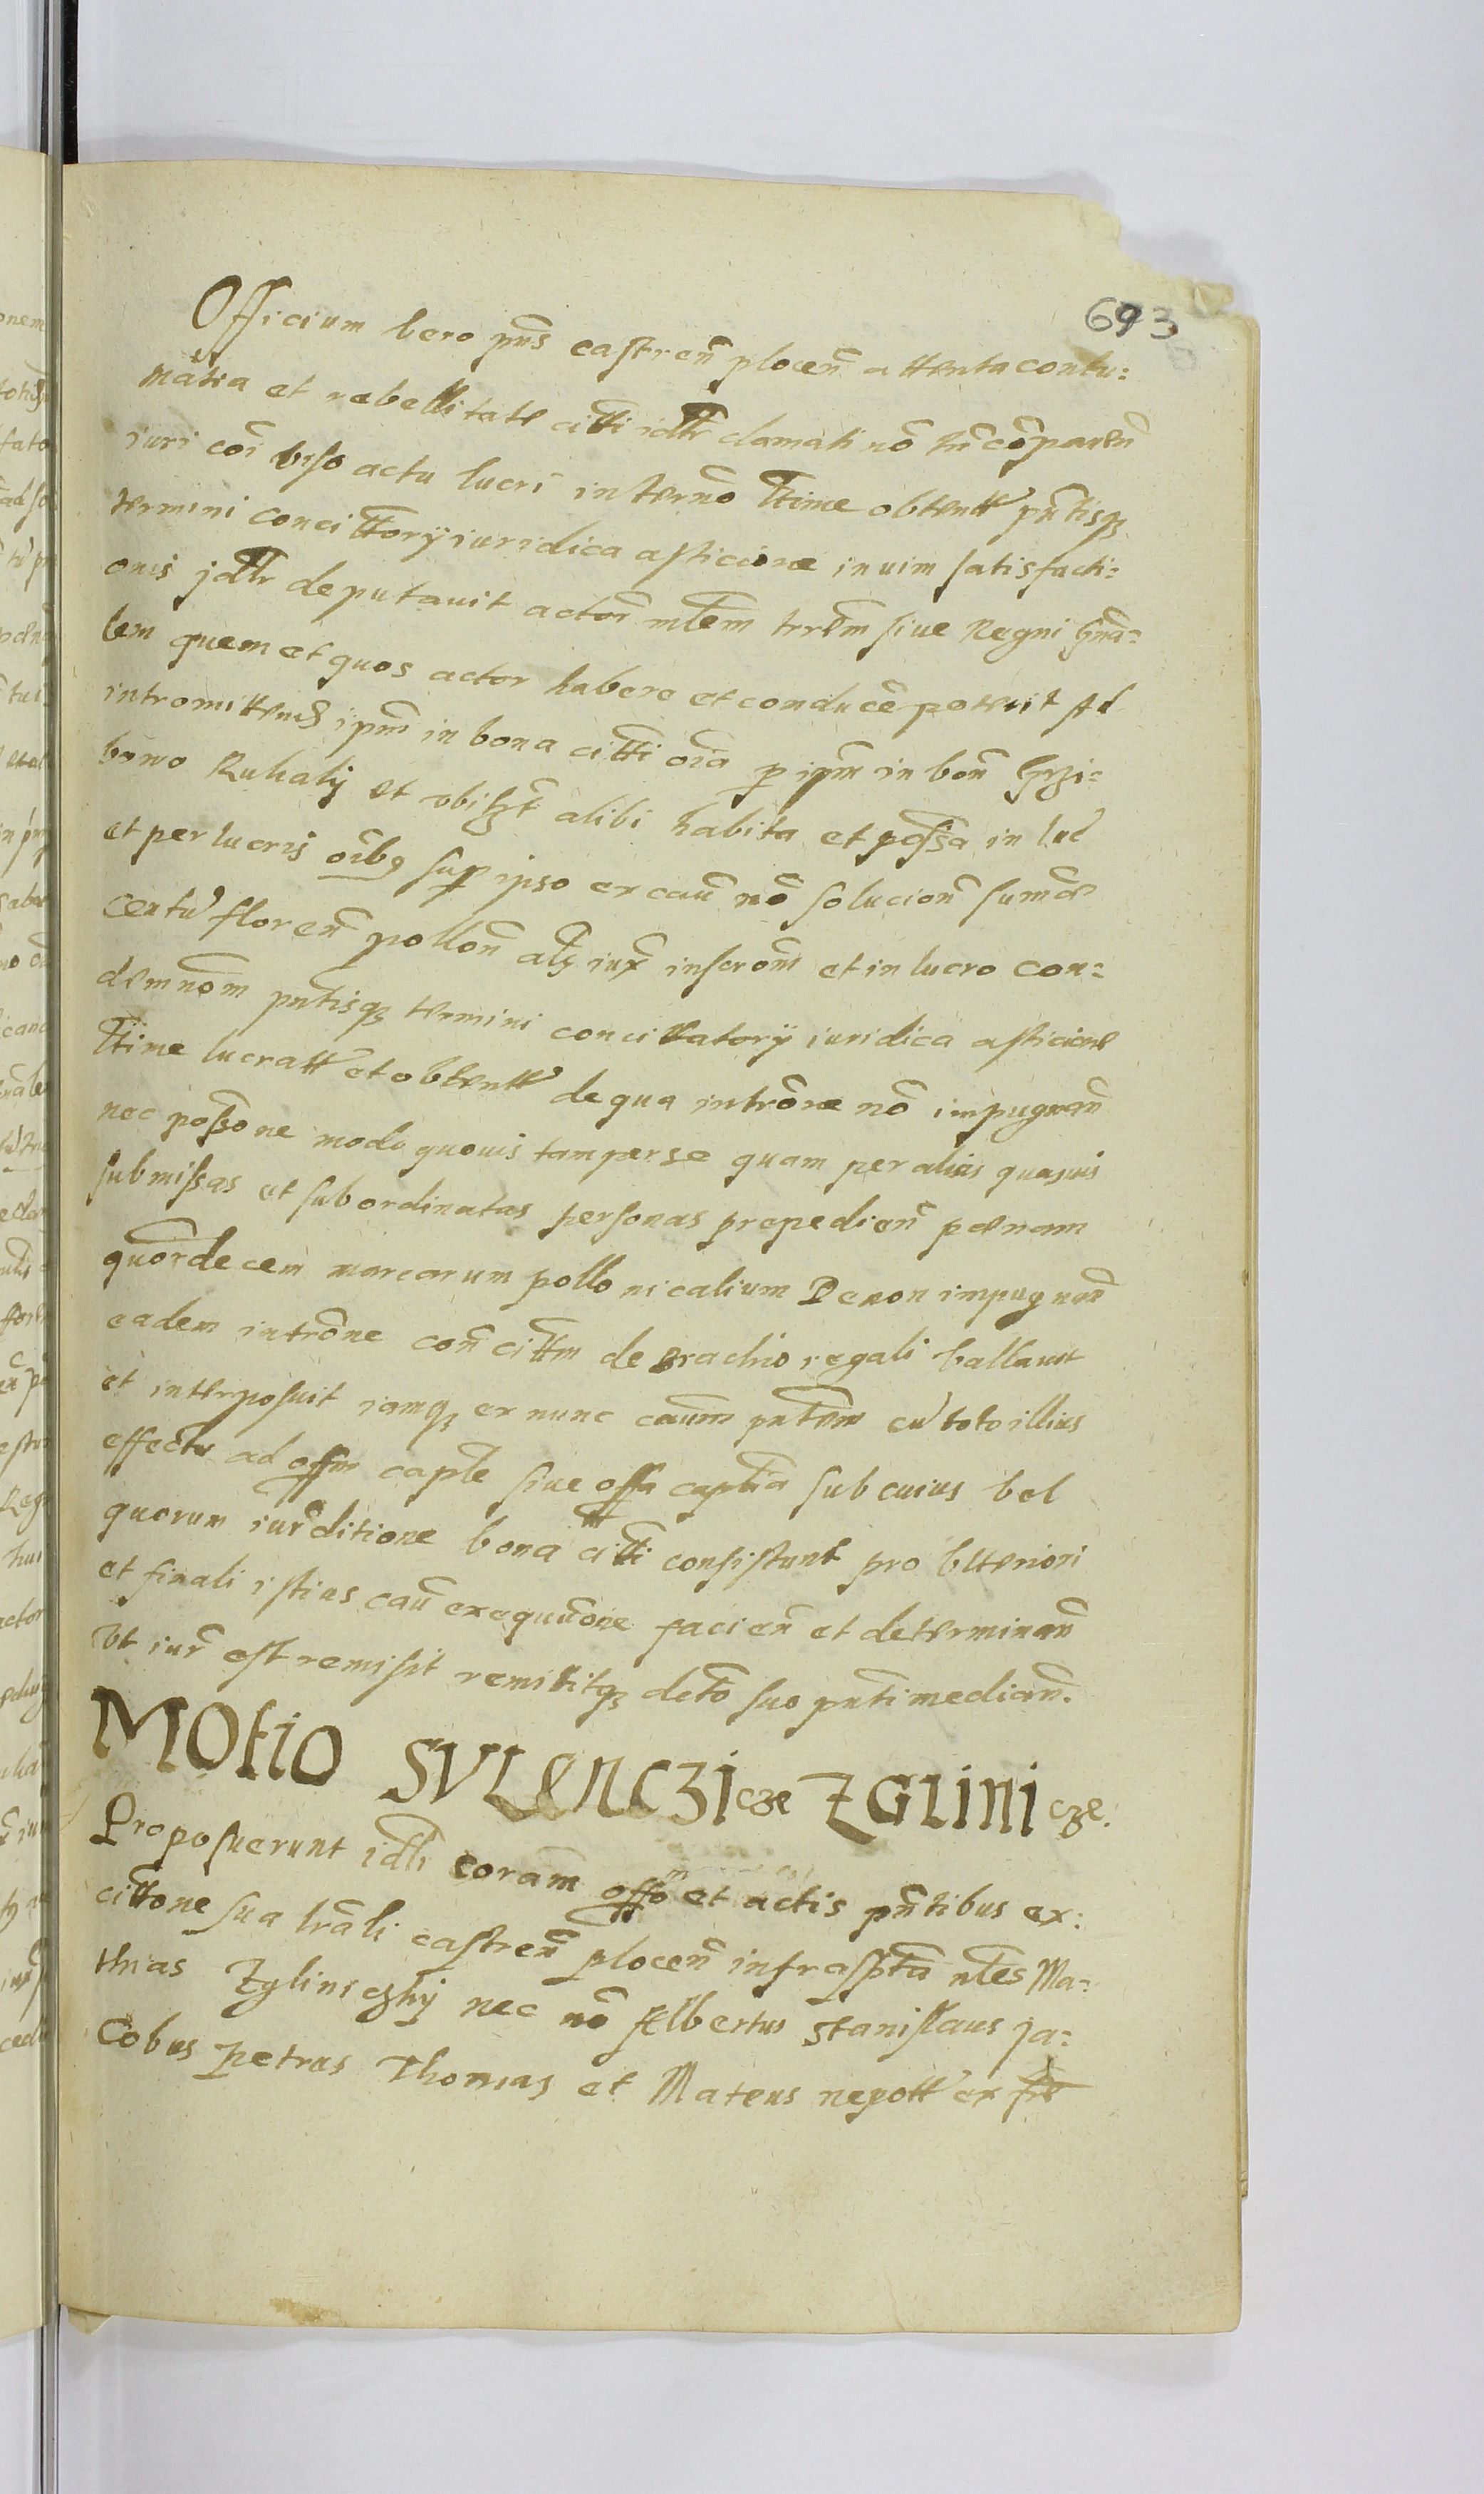 693
Officium vero pñs castreñ ploceñ attenta contu:
matia et rebellitate citti idtr clamati nõ tñ cõpareñ
iuri coi viso actu lucri in terno ttime obtentt pñtisqz
termini concittorij iuridica asticione in vim satisfacti:
onis jdtr deputavit actori mltem trrem sive Regni Gna:
lem quem et quos actor habere et conducẽ poterit Ad
intromittend ipm in bona citti oia p ipm in boñ Grzi:
bowo Rukaly et vbilzt alibi habita et possa in luc
et per lucris oibq sup ipso ex cau nõ solucioñ sumae
centu floreñ polloñ als iux inscrom et in lucro con:
demnom pñtisqz termini concittatorij iuridica asticione
ttime lucratt et obtentt de qua introne nõ impugnañ
nec possone modo quovis tam per se quam per alias quasvis
submissas et subordinatas personas prepedieñ penam
quordecem marcarum pollonicalium De non impugnañ
eadem introne coñ cittm de brachio regali vallavit
et interposuit iamqz ex nunc caum pñtem cu toto illius
effectu ad offm captle sive offa captlia sub cuius vel
quorum iurditione bona citti consistunt pro vlteriori
et finali istius cau exequuone facieñ et determinañ
vt iur est remisit remititqz dcto suo pñti mediañ.
MOtio SVLENCZIcze ZGLINIcze.
Proposuerunt idtr coram offo et actis pñtibus ex:
cittone sua lrali castreñ ploceñ infrasptã nles Ma:
thias Zglinsczky nec nõ Albertus Stanislaus Ja:
cobus Petrus Thomas et Mateus nepott ex frẽ